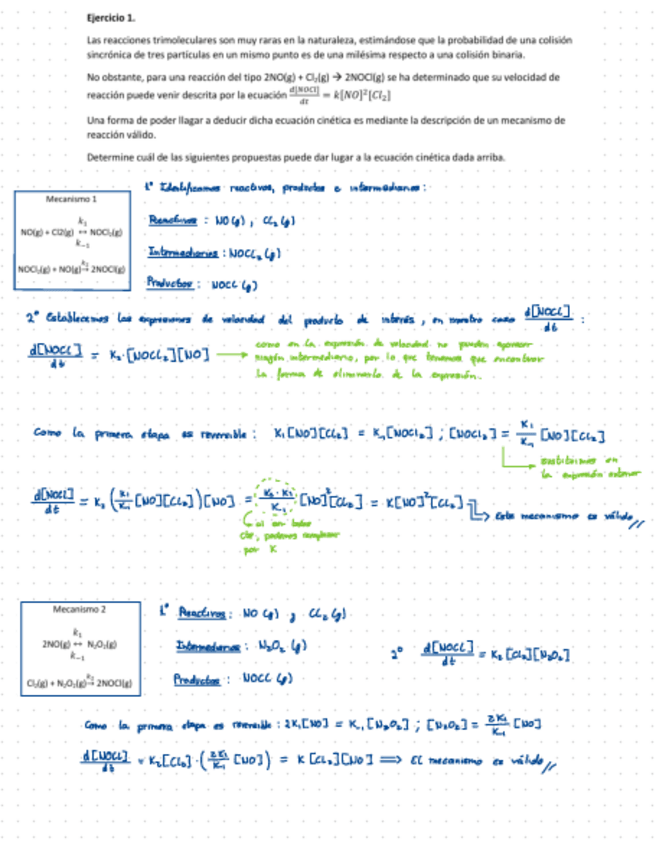 Ejercicio 1.
Las reacciones trimoleculares son muy raras en la naturaleza, estimándose que la probabilidad de una colisión
sincrónica de tres partículas en un mismo punto es de una milésima respecto a una colisión binaria.
No obstante, para una reacción del tipo 2NO(g) + Cl₂(g) → 2NOCl(g) se ha determinado que su velocidad de
reacción puede venir descrita por la ecuación d[NOCl]/dt = k[NO]²[Cl₂]
Una forma de poder llagar a deducir dicha ecuación cinética es mediante la descripción de un mecanismo de
reacción válido.
Determine cuál de las siguientes propuestas puede dar lugar a la ecuación cinética dada arriba.
Mecanismo 1
k₁
NO(g) + Cl2(g) ↔ NOCl₂(g)
k₋₁
NOCl₂(g) + NO(g) →k₂ 2NOCl(g)
1º Identificamos reactivos, productos e intermediarios:
Reactivos : NO(g), Cl₂(g)
Intermediarios : NOCl₂(g)
Productos : NOCl(g)
2º Establecemos las expresiones de velocidad del producto de interés, en nuestro caso d[NOCl]/dt :
d[NOCl]/dt = K₂·[NOCl₂][NO] →
como en la expresión de velocidad no pueden aparecer
ningún intermediario, por lo que tenemos que encontrar
la forma de eliminarlo de la expresión.
Como la primera etapa es reversible : K₁[NO][Cl₂] = K₋₁[NOCl₂] ; [NOCl₂] = K₁/K₋₁ [NO][Cl₂]
sustituimos en
la expresión anterior
d[NOCl]/dt = K₂ (K₁/K₋₁ [NO][Cl₂])[NO] = K₂·K₁/K₋₁ [NO]²[Cl₂] = K[NO]²[Cl₂] → Este mecanismo es válido //
por K
Mecanismo 2
k₁
2NO(g) ↔ N₂O₂(g)
k₋₁
Cl₂(g) + N₂O₂(g) →k₂ 2NOCl(g)
1º Reactivos : NO(g) y Cl₂(g)
Intermediarios : N₂O₂(g)
Productos : NOCl(g)
2º d[NOCl]/dt = K₂[Cl₂][N₂O₂]
Como la primera etapa es reversible : 2K₁[NO] = K₋₁[N₂O₂] ; [N₂O₂] = 2K₁/K₋₁ [NO]
d[NOCl]/dt = K₂[Cl₂]·(2K₁/K₋₁ [NO]) = K[Cl₂][NO] ⟹ El mecanismo es válido //